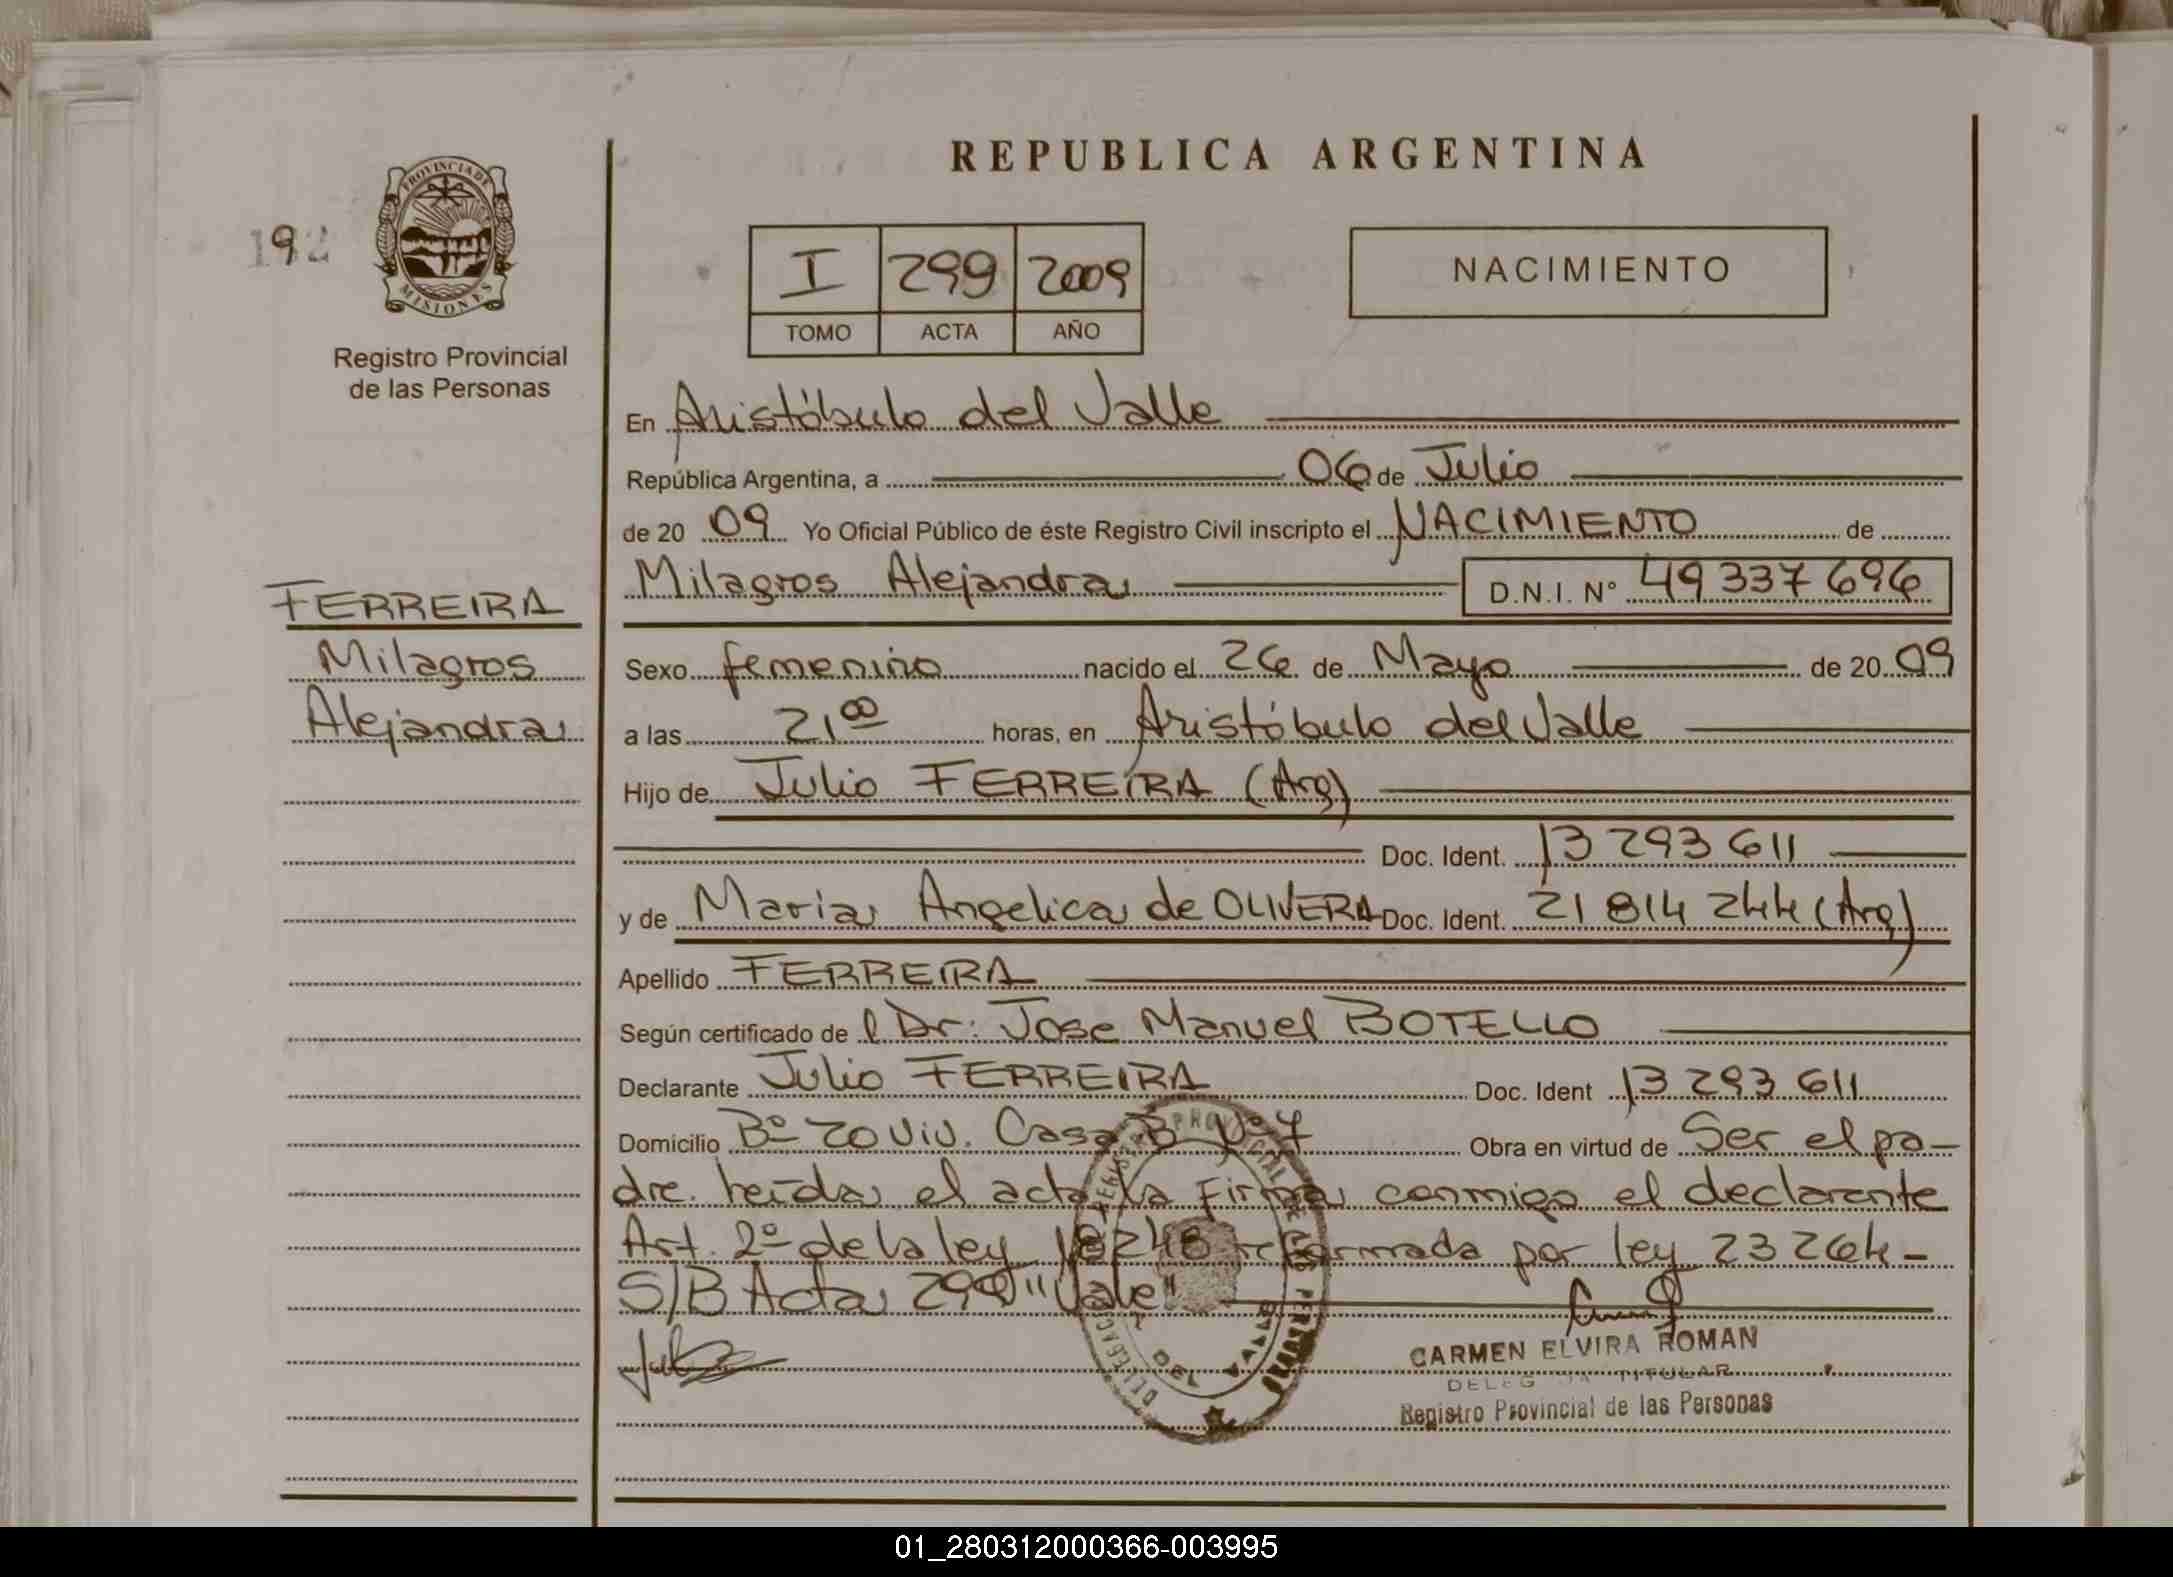 REPUBLICA ARGENTINA
192
PROVINCIA DE
MISIONES
Registro Provincial
de las Personas
I 299 2009
TOMO ACTA AÑO
NACIMIENTO
En Aristóbulo del Valle
República Argentina, a 06 de Julio
de 20 09 Yo Oficial Público de éste Registro Civil inscripto el NACIMIENTO de
Milagros Alejandra D.N.I. Nº 49337696
FERREIRA
Milagros
Alejandra
Sexo femenino nacido el 26 de Mayo de 20 09
a las 21 00 horas, en Aristóbulo del Valle
Hijo de Julio FERREIRA (Arg)
Doc. Ident. 13 293 611
y de Maria Angelica de OLIVERA Doc. Ident. 21 814 244 (Arg)
Apellido FERREIRA
Según certificado de l Dr. Jose Manuel BOTELLO
Declarante Julio FERREIRA Doc. Ident 13 293 611
Domicilio Bº 20 Viv. Casa Nº 7 Obra en virtud de Ser el pa-
dre. leída el acta la firma conmigo el declarante
Art. 2º de la ley 18248 reformada por ley 23264-
S/B Acta 299 "Vale"
CARMEN ELVIRA ROMAN
TITULAR
Registro Provincial de las Personas
01_280312000366-003995